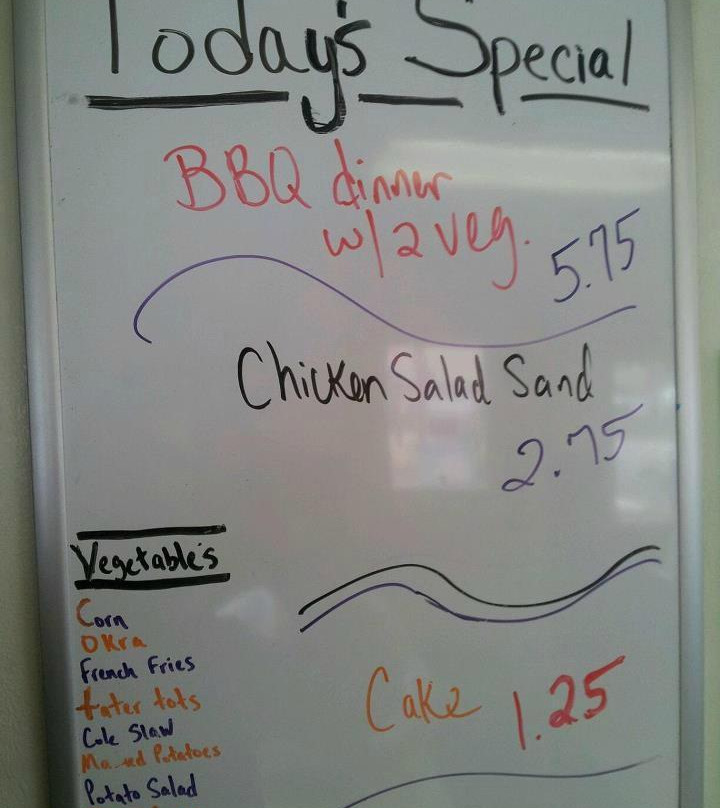 Today's Special
BBQ dinner
w/2 veg.
5.75
Chicken Salad Sand
2.75
Vegetable's
Corn
Okra
French Fries
tater tots
Cole Slaw
Potatoes
Potato Salad
Cake 1.25